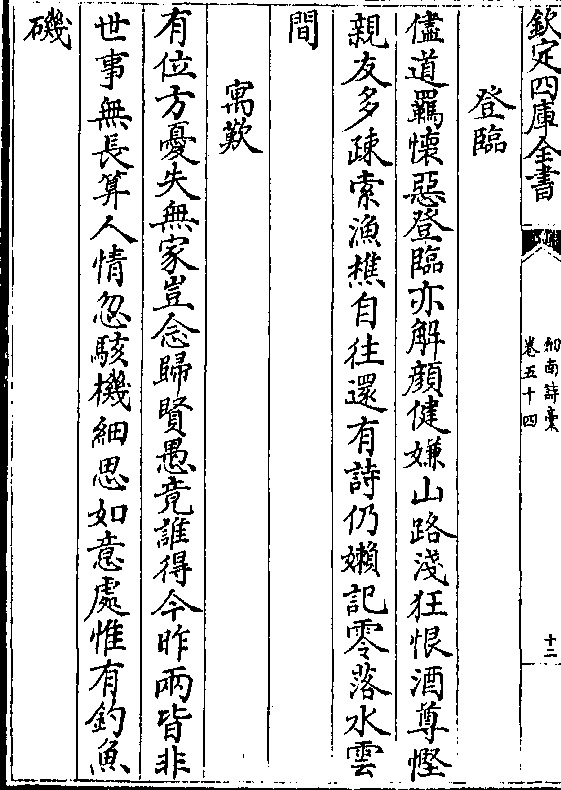 欽定四庫全書
劒南詩藁
卷五十四
十二
登臨
儘道羈懷惡登臨亦解顔健嫌山路淺狂恨酒尊慳
親友多疎索漁樵自往還有詩仍嬾記零落水雲
間
寓歎
有位方憂失無家豈念歸賢愚竟誰得今昨兩皆非
世事無長算人情忽駭機細思如意處惟有釣魚
磯